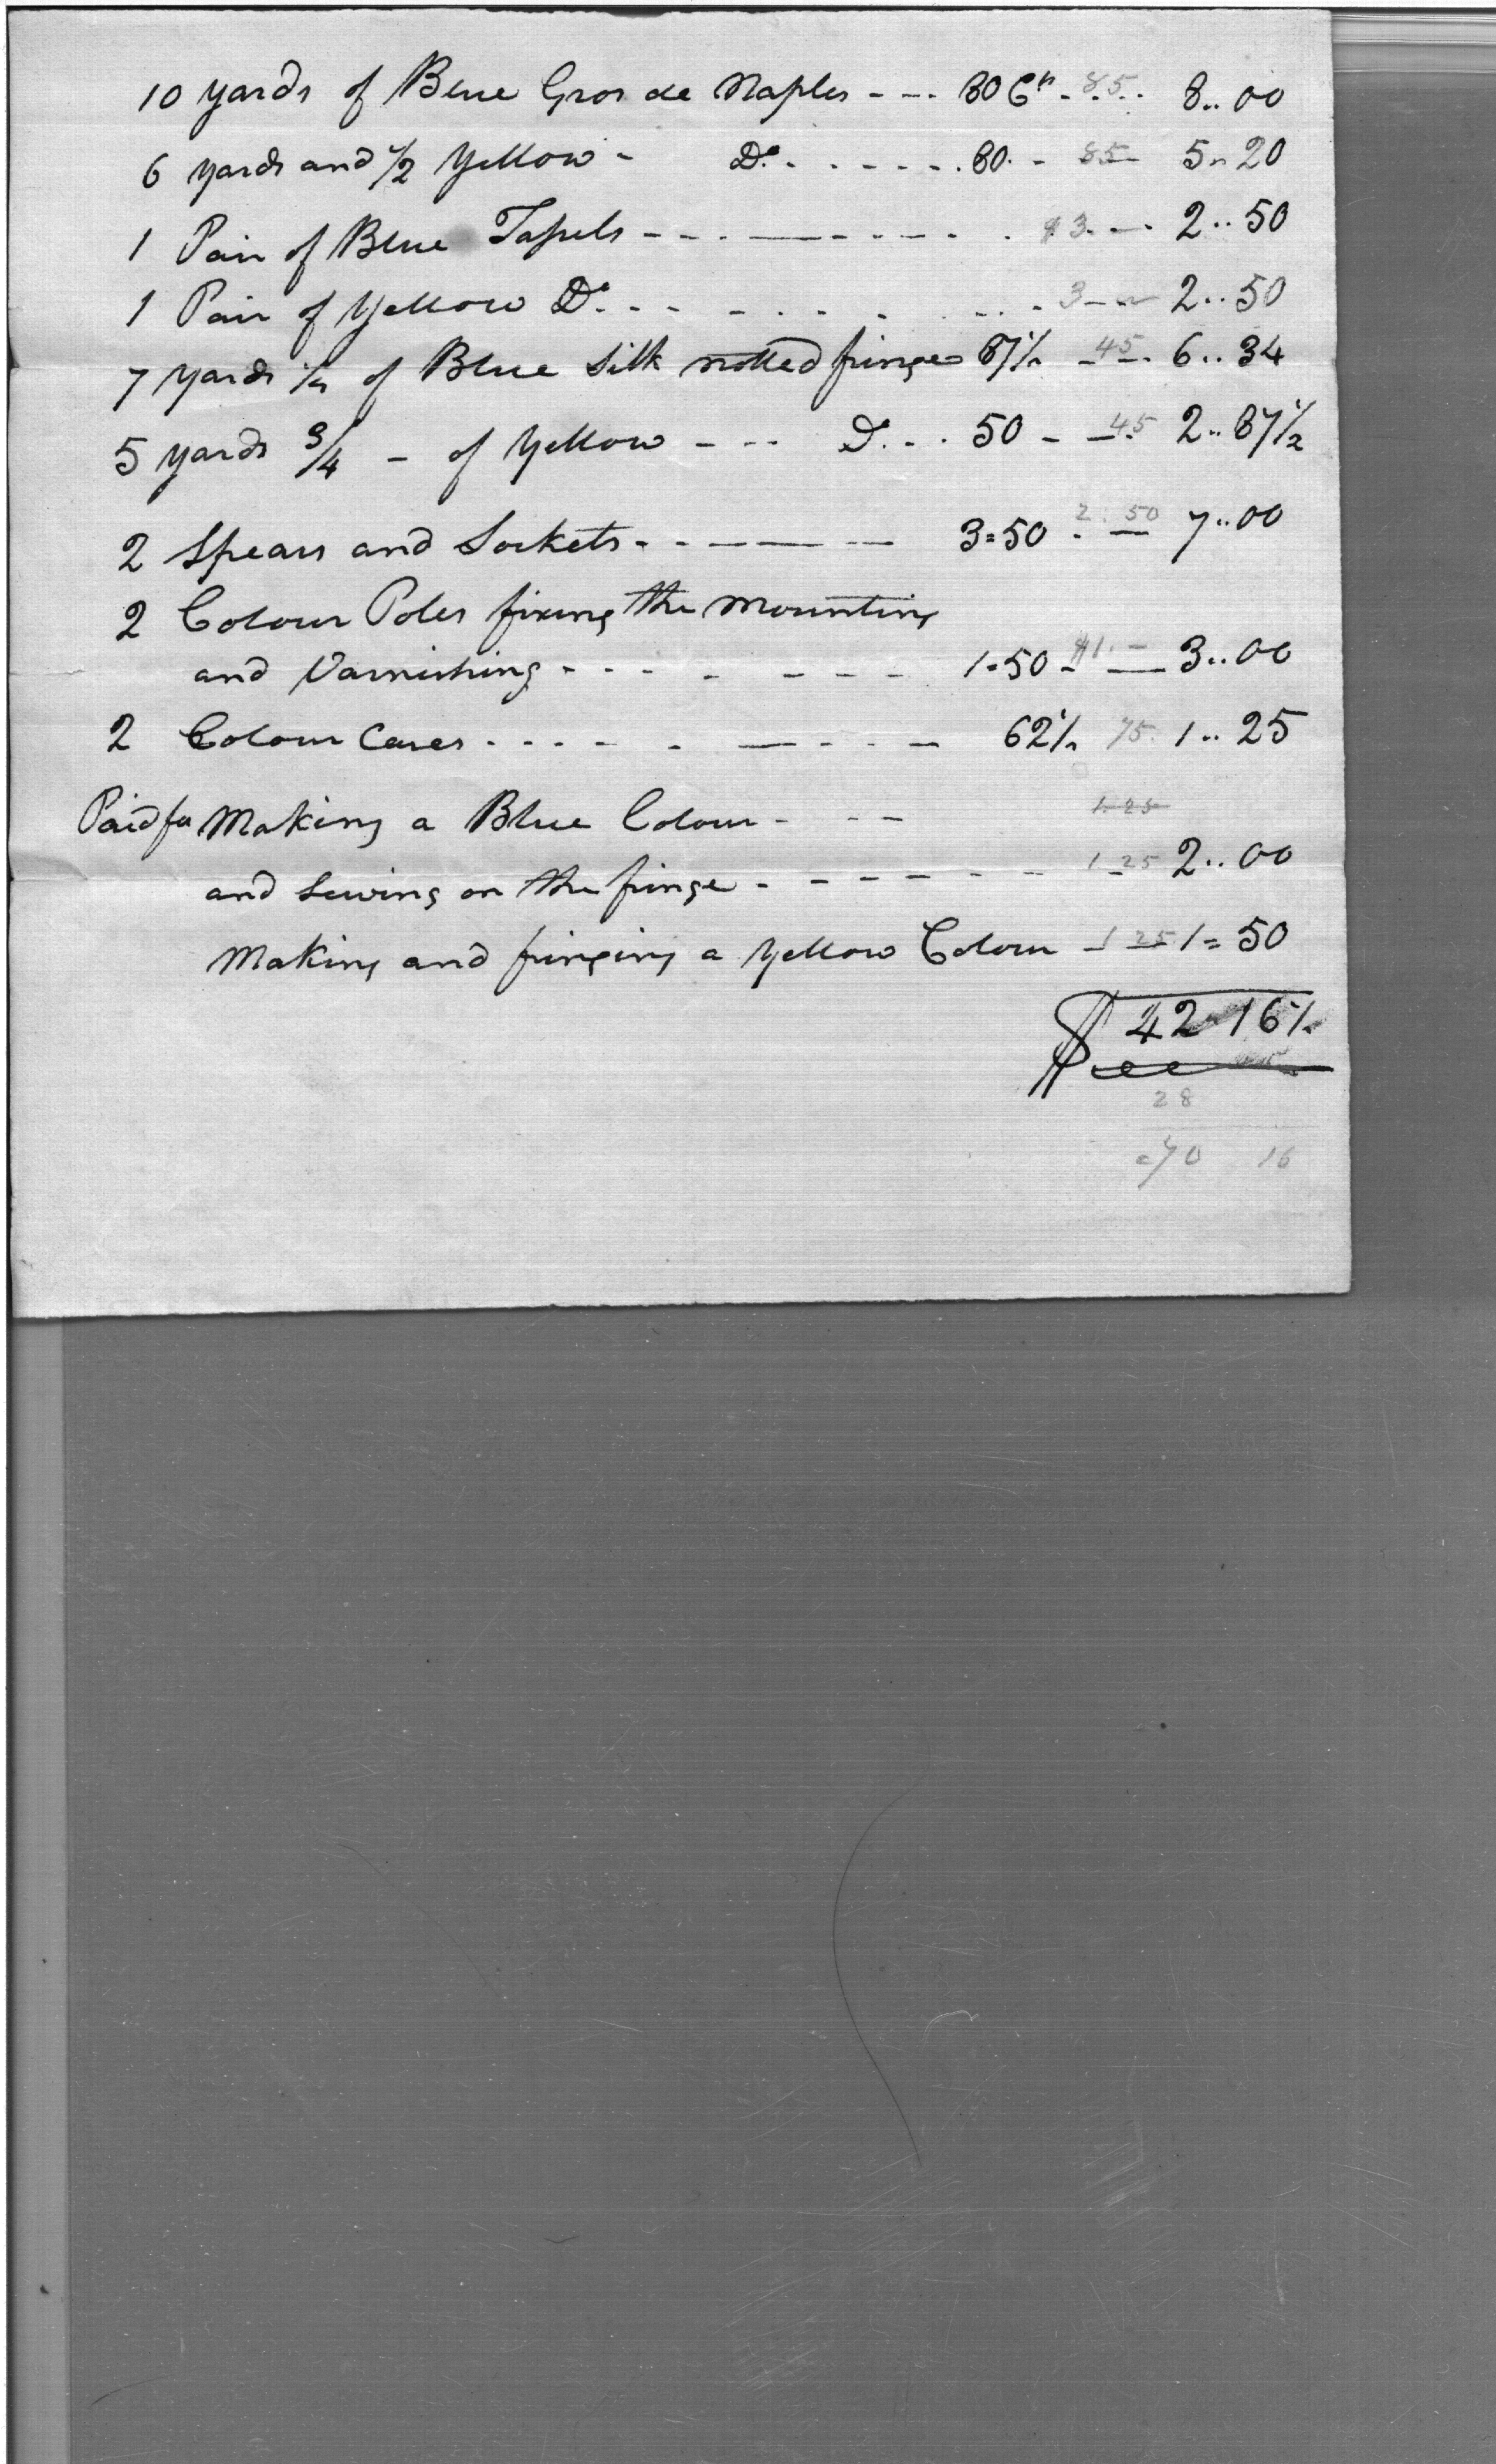 10 yards of Blue Gros de Naples - - - 80 Cts - 85 - 8.. 00
6 yards and 1/2 Yellow - Do. - - - - - 80 - 85 - 5.. 20
1 Pair of Blue Tafsels - - - - - - - - $3 - - 2.. 50
1 Pair of Yellow Do. - - - - - - - 3 - - 2.. 50
7 yards 1/4 of Blue Silk notted fringe 87 1/2 - 45 - 6.. 34
5 yards 3/4 - of Yellow - - - Do. - - 50 - 45 2.. 87 1/2
2 Spears and Sockets - - - - - 3=50 - 2.50 7.. 00
2 Colour Poles fixing the Mounting
and Varnishing - - - - - - - 1=50 - $1. - 3.. 00
2 Colour Cases - - - - - - - - - 62 1/2 75 1.. 25
Paid for Making a Blue Colour - - - 1 25
and Sewing on the fringe - - - - - - - 1 25 2.. 00
Making and fringing a Yellow Colour - 1 25 1= 50
$ 42-16 1/2
28
70 16